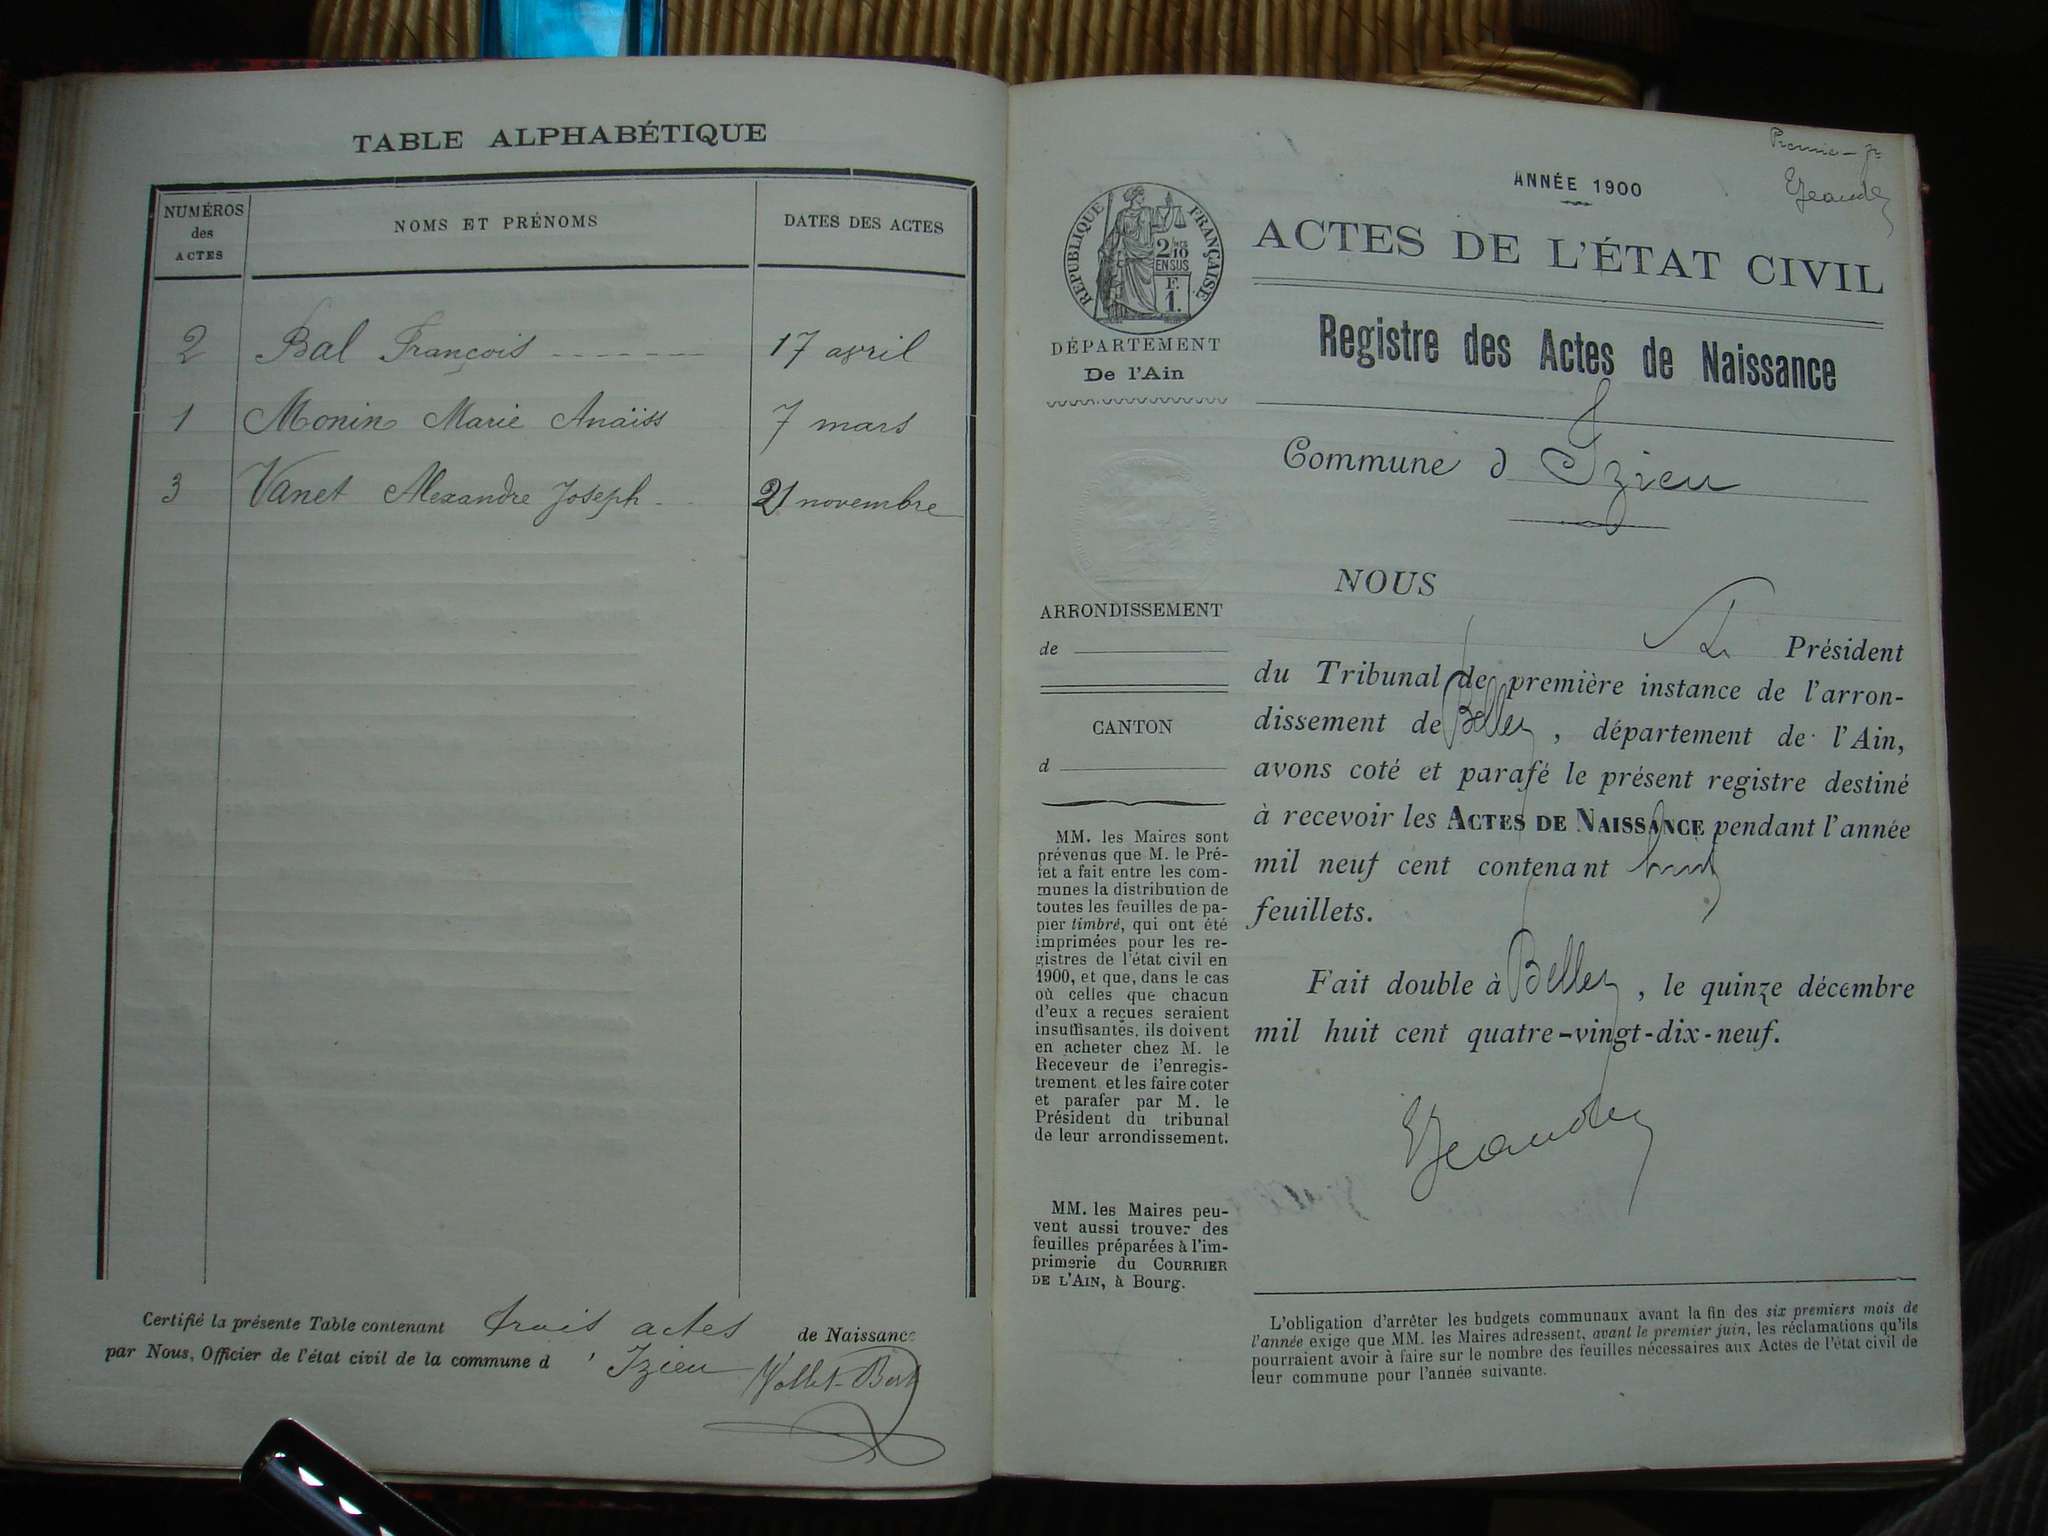 TABLE ALPHABÉTIQUE
NUMÉROS
des
ACTES
NOMS ET PRÉNOMS
DATES DES ACTES
2 Bal François 17 avril
1 Monin Marie Anaïss 7 mars
3 Vanet Alexandre Joseph 21 novembre
Certifié la présente Table contenant trois actes de Naissance
par Nous, Officier de l'état civil de la commune d' Izieu
ANNÉE 1900
RÉPUBLIQUE FRANÇAISE
2/10
EN SUS
F.
1.
DÉPARTEMENT
De l'Ain
ACTES DE L'ÉTAT CIVIL
Registre des Actes de Naissance
Commune d Izieu
ARRONDISSEMENT
de
CANTON
d
MM. les Maires sont
prévenus que M. le Pré-
fet a fait entre les com-
munes la distribution de
toutes les feuilles de pa-
pier timbré, qui ont été
imprimées pour les re-
gistres de l'état civil en
1900, et que, dans le cas
où celles que chacun
d'eux a reçues seraient
insuffisantes. ils doivent
en acheter chez M. le
Receveur de l'enregis-
trement et les faire coter
et parafer par M. le
Président du tribunal
de leur arrondissement.
MM. les Maires peu-
vent aussi trouver des
feuilles préparées à l'im-
primerie du COURRIER
DE L'AIN, à Bourg.
NOUS
Président
du Tribunal de première instance de l'arron-
dissement de Belley, département de l'Ain,
avons coté et parafé le présent registre destiné
à recevoir les ACTES DE NAISSANCE pendant l'année
mil neuf cent contenant
feuillets.
Fait double à Belley, le quinze décembre
mil huit cent quatre-vingt-dix-neuf.
L'obligation d'arrêter les budgets communaux avant la fin des six premiers mois de
l'année exige que MM. les Maires adressent, avant le premier juin, les réclamations qu'ils
pourraient avoir à faire sur le nombre des feuilles nécessaires aux Actes de l'état civil de
leur commune pour l'année suivante.